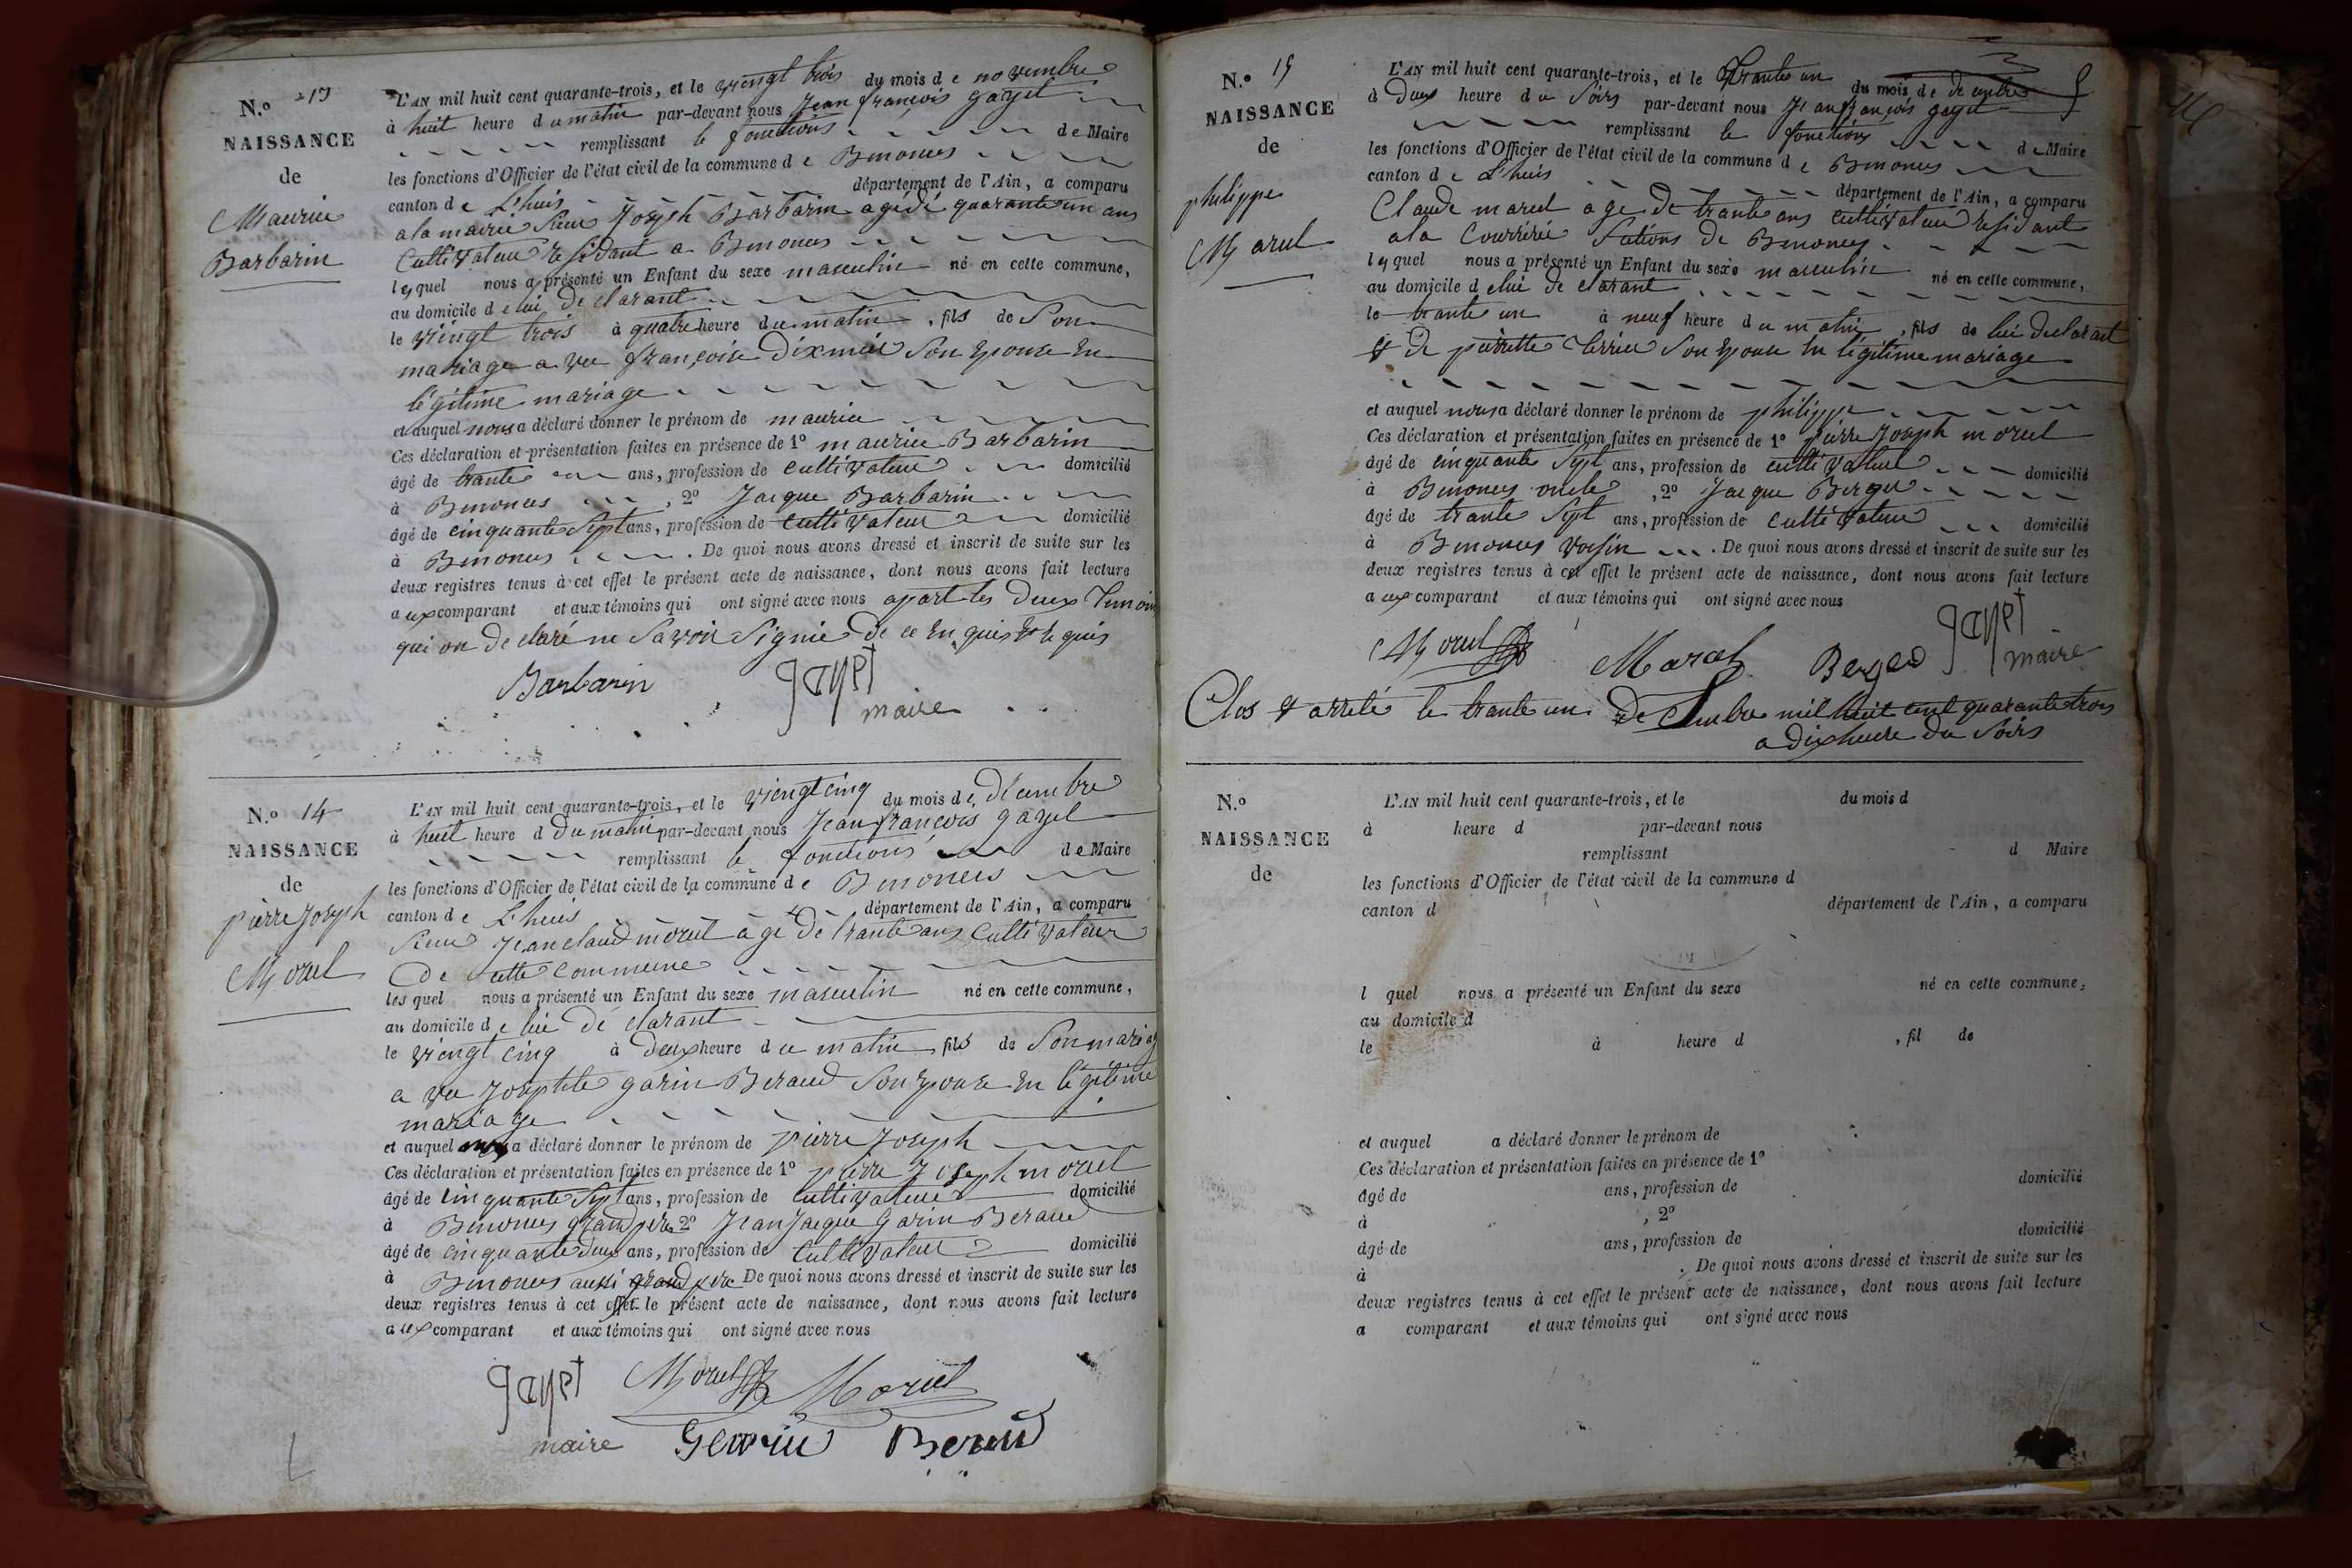 N.o 13
NAISSANCE
de
Maurice
Barbarin
L'AN mil huit cent quarante-trois, et le vingt trois du mois de novembre
à huit heure du matin par-devant nous Jean françois gayet
remplissant le fonctions de Maire
les fonctions d'Officier de l'état civil de la commune de Benonces
canton de L'huis département de l'Ain, a comparu
a la mairie Sieur Joseph Barbarin agé de quarante un ans
Cultivateur residant a Benonces
lequel nous a présenté un Enfant du sexe masculin né en cette commune,
au domicile de lui declarant
le vingt trois à quatre heure du matin, fils de Son
mariage avec françoise Dixmier Son Epouse En
légitime mariage
et auquel nous a déclaré donner le prénom de maurice
Ces déclaration et présentation faites en présence de 1o maurice Barbarin
âgé de trante ans, profession de cultivateur domicilié
à Benonces, 2o Jacque Barbarin
âgé de cinquante Sept ans, profession de cultivateur domicilié
à Benonces. De quoi nous avons dressé et inscrit de suite sur les
deux registres tenus à cet effet le présent acte de naissance, dont nous avons fait lecture
aux comparant et aux témoins qui ont signé avec nous apart les deux temoins
qui on declaré ne Savoir Signié de ce Enquis & Requis
Barbarin gayet
maire
N.o 14
NAISSANCE
de
pierre Joseph
Morel
L'AN mil huit cent quarante-trois, et le viengt cinq du mois de, décembre
à huit heure d du matin par-devant nous Jean françois gayet
remplissant le fonctions de Maire
les fonctions d'Officier de l'état civil de la commune de Benonces
canton de L'huis département de l'Ain, a comparu
Sieur Jean claude morel agé de trante ans Cultivateur
de cette commune
les quel nous a présenté un Enfant du sexe masculin né en cette commune,
au domicile de lui déclarant
le viengt cinq à deux heure du matin, fils de Son mariage
a vec Josephte garin Beraud Son Epouse En légitime
mariage
et auquel nous a déclaré donner le prénom de pierre Joseph
Ces déclaration et présentation faites en présence de 1o pierre Joseph morel
âgé de cinquante Sept ans, profession de cultivateur domicilié
à Benonces grand pere 2o Jean Jacque Garin Beraud
âgé de cinquante deux ans, profession de Cultivateur domicilié
à Benonces aussi grand pere De quoi nous avons dressé et inscrit de suite sur les
deux registres tenus à cet effet le présent acte de naissance, dont nous avons fait lecture
aux comparant et aux témoins qui ont signé avec nous
gayet Morel Morel
maire Gerrin Beraud
N.o 15
NAISSANCE
de
philippe
Marel
L'AN mil huit cent quarante-trois, et le trante un du mois de decembre
à Deux heure du Soirs par-devant nous Jean françois gayet
remplissant le fonctions de Maire
les fonctions d'Officier de l'état civil de la commune de Benonces
canton de L'huis département de l'Ain, a comparu
Claude marel agé de trante ans cultivateur residant
a la Courrérié Sections de Benonces
lequel nous a présenté un Enfant du sexe masculin né en cette commune,
au domicile de lui declarant
le trante un à neuf heure du matin, fils de lui declarant
& de pierrette Perrier Son Epouse En légitime mariage
et auquel nous a déclaré donner le prénom de philippe
Ces déclaration et présentation faites en présence de 1o pierre Joseph morel
âgé de cinquante Sept ans, profession de cultivateur domicilié
à Benonces oncle, 2o Jacque Berger
âgé de trante Sept ans, profession de Cultivateur domicilié
à Benonces voisin. De quoi nous avons dressé et inscrit de suite sur les
deux registres tenus à cet effet le présent acte de naissance, dont nous avons fait lecture
aux comparant et aux témoins qui ont signé avec nous
Morel Maral Berger gayet
maire
Clos & arrété le trante un Decembre mil huit cent quarante trois
a dix heure du Soirs
N.o
NAISSANCE
de
L'AN mil huit cent quarante-trois, et le du mois d
à heure d par-devant nous
remplissant d Maire
les fonctions d'Officier de l'état civil de la commune d
canton d département de l'Ain, a comparu
l quel nous a présenté un Enfant du sexe né en cette commune,
au domicile d
le à heure d, fil de
et auquel a déclaré donner le prénom de
Ces déclaration et présentation faites en présence de 1o
âgé de ans, profession de domicilié
à, 2o
âgé de ans, profession de domicilié
à. De quoi nous avons dressé et inscrit de suite sur les
deux registres tenus à cet effet le présent acte de naissance, dont nous avons fait lecture
a comparant et aux témoins qui ont signé avec nous